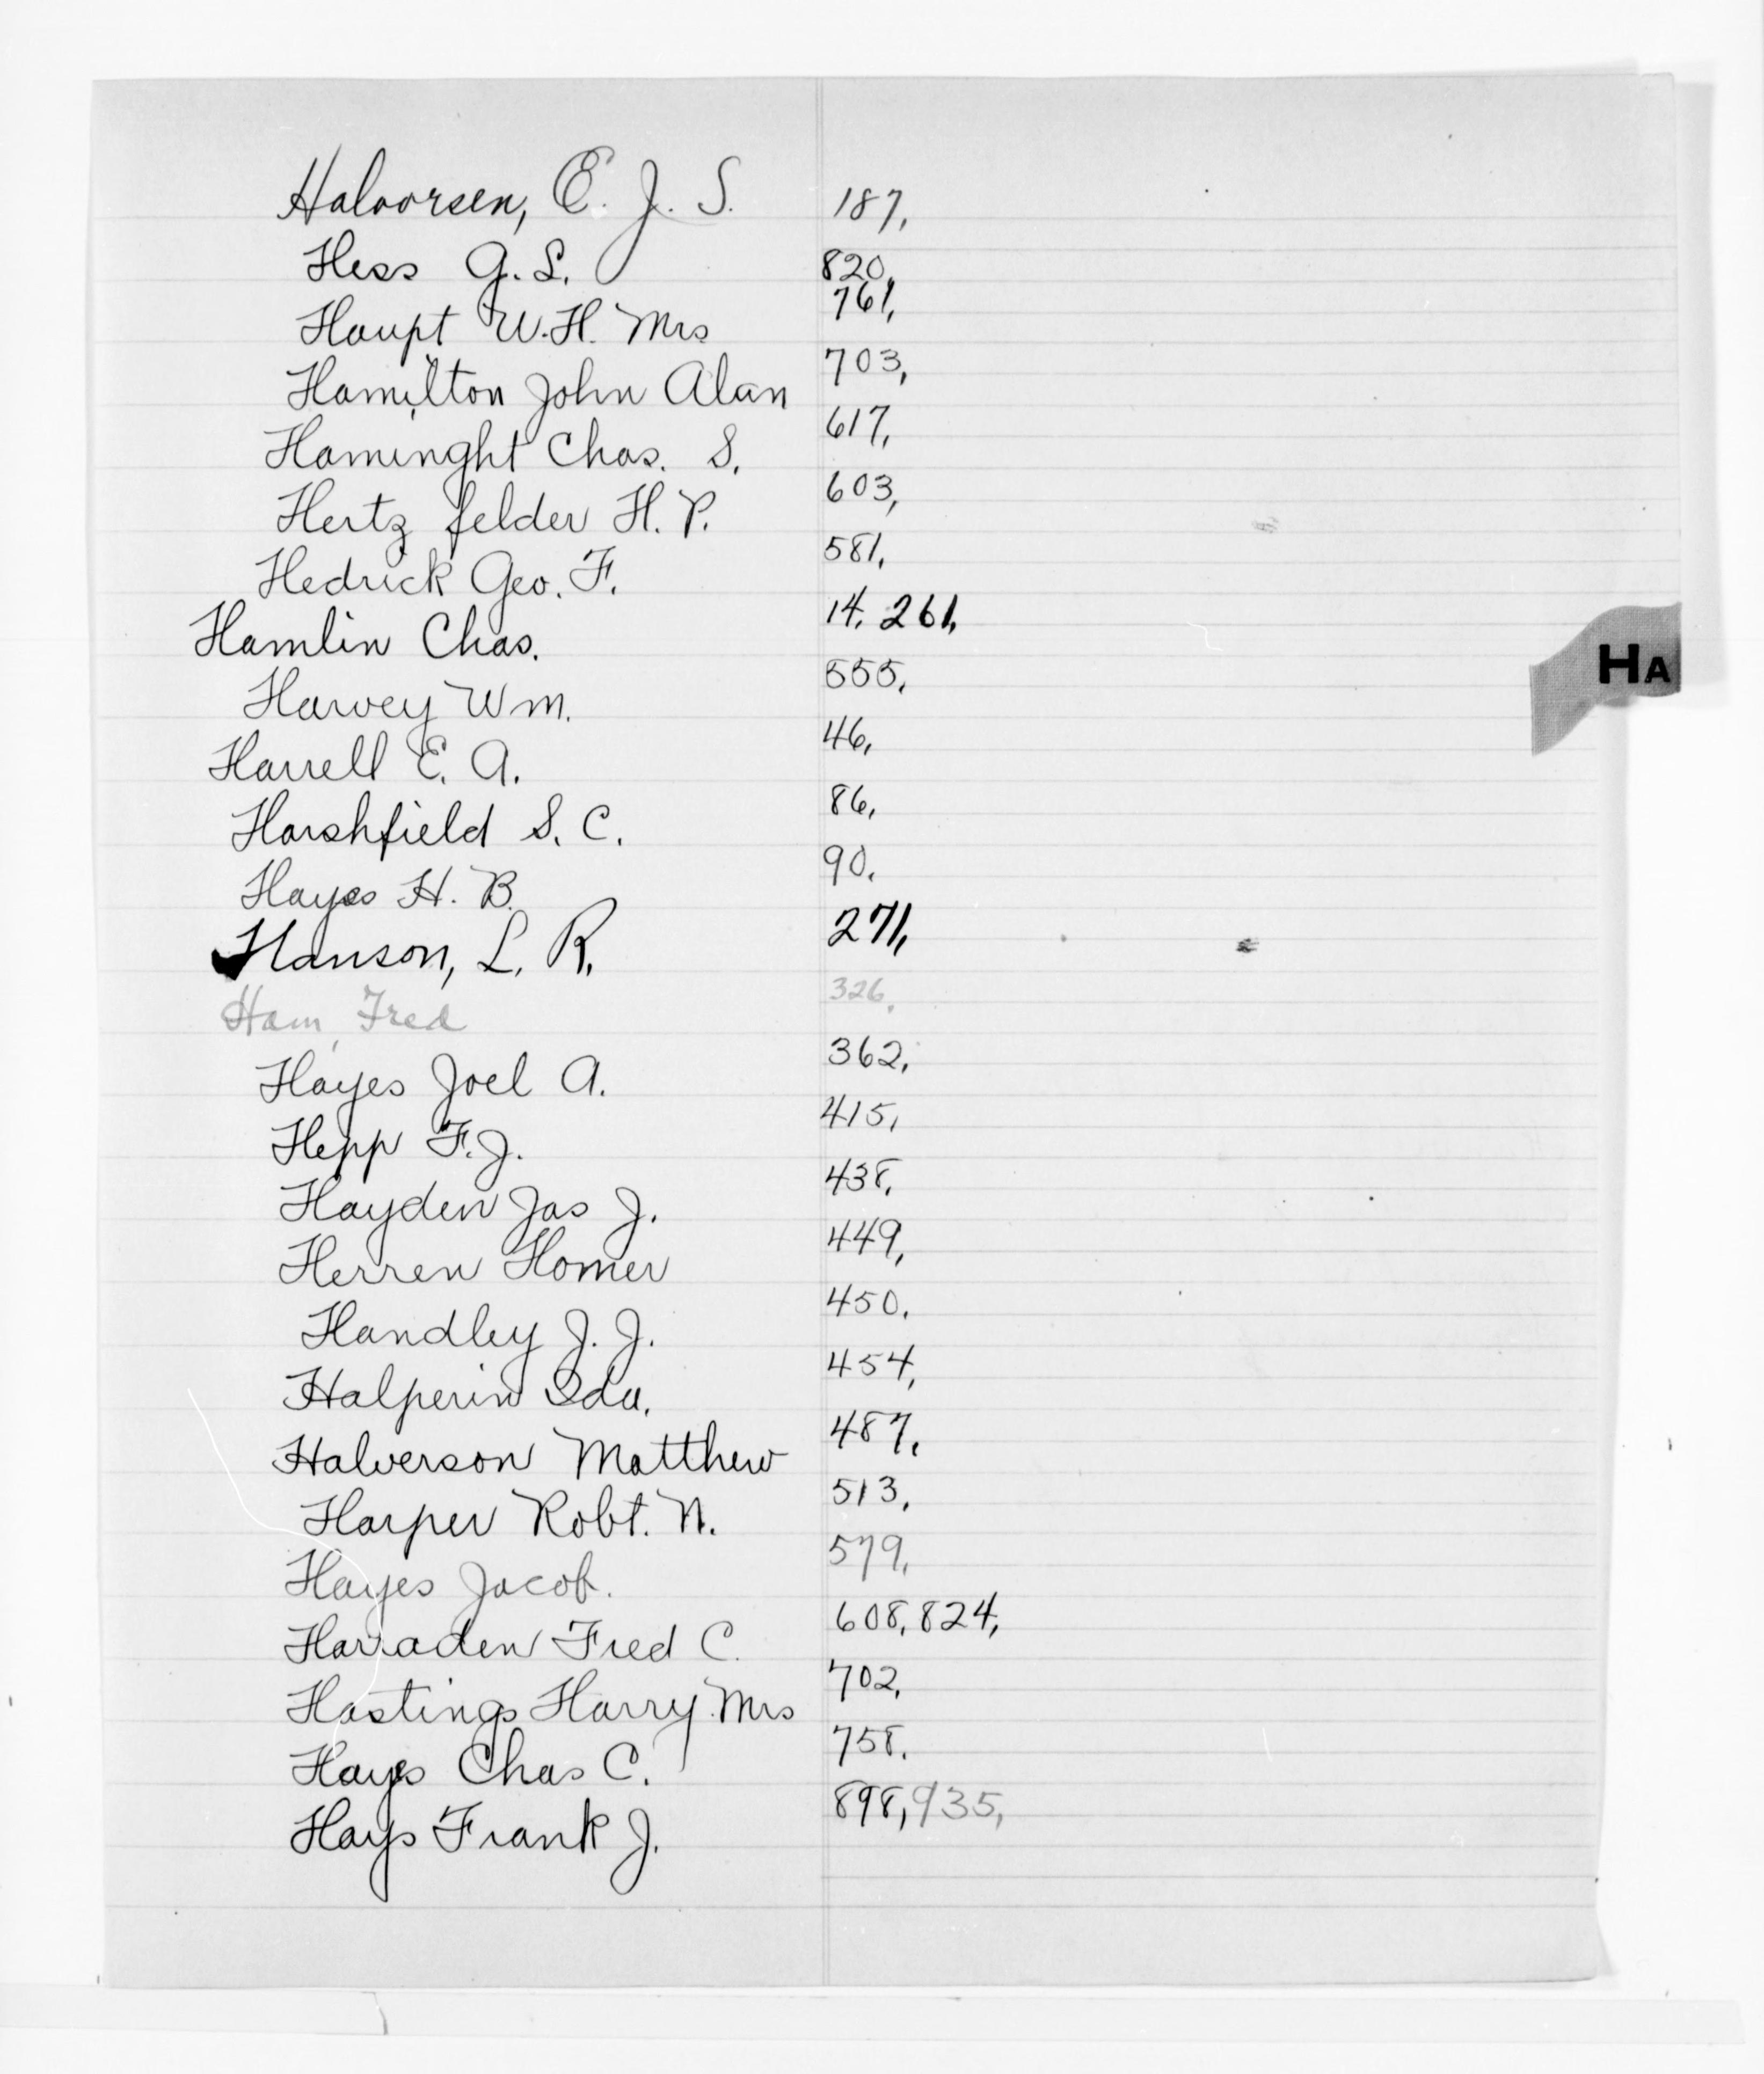 Halvorsen, E. J. S. 187,
Hess G. L. 820,
Haupt W. H. Mrs 761,
Hamilton John Alan 703,
Haminght Chas. S. 617,
Hertz felder H. P. 603,
Hedrick Geo. F. 581,
Hamlin Chas. 14, 261,
Harvey Wm. 555,
HA
Harrell E. A. 46,
Harshfield S. C. 86,
Hayes H. B. 90,
Hanson, L. R. 271,
Ham, Fred 326,
Hayes Joel A. 362,
Hepp F. J. 415,
Hayden Jas J. 438,
Herren Homer 449,
Handley J. J. 450,
Halperin Ida. 454,
Halverson Matthew 487,
Harper Robt. N. 513,
Hayes Jacob. 579,
Harraden Fred C. 608, 824,
Hastings Harry Mrs 702,
Hays Chas C. 758,
Hays Frank J. 898, 935,